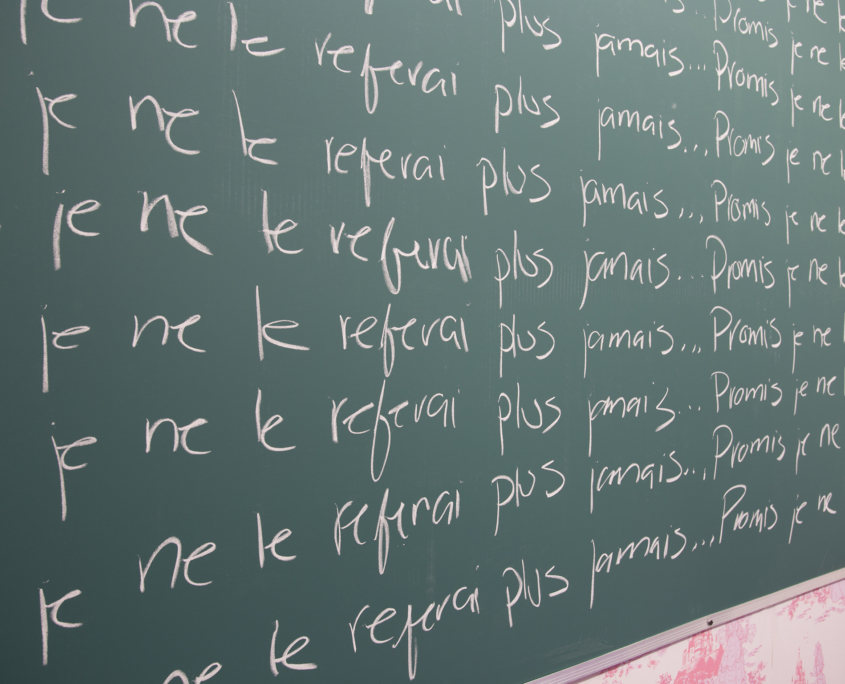 Promis je ne
plus jamais... Promis je ne
je ne le referai plus jamais... Promis je ne
je ne le referai plus jamais... Promis je ne
je ne le referai plus jamais... Promis je ne
je ne le referai plus jamais... Promis je ne
je ne le referai plus jamais... Promis je ne
je ne le referai plus jamais... Promis je ne
ne le referai plus jamais... Promis je ne